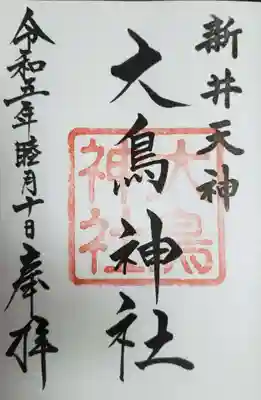 新井天神
大鳥神社
大鳥
神社
令和五年睦月十日
奉拝